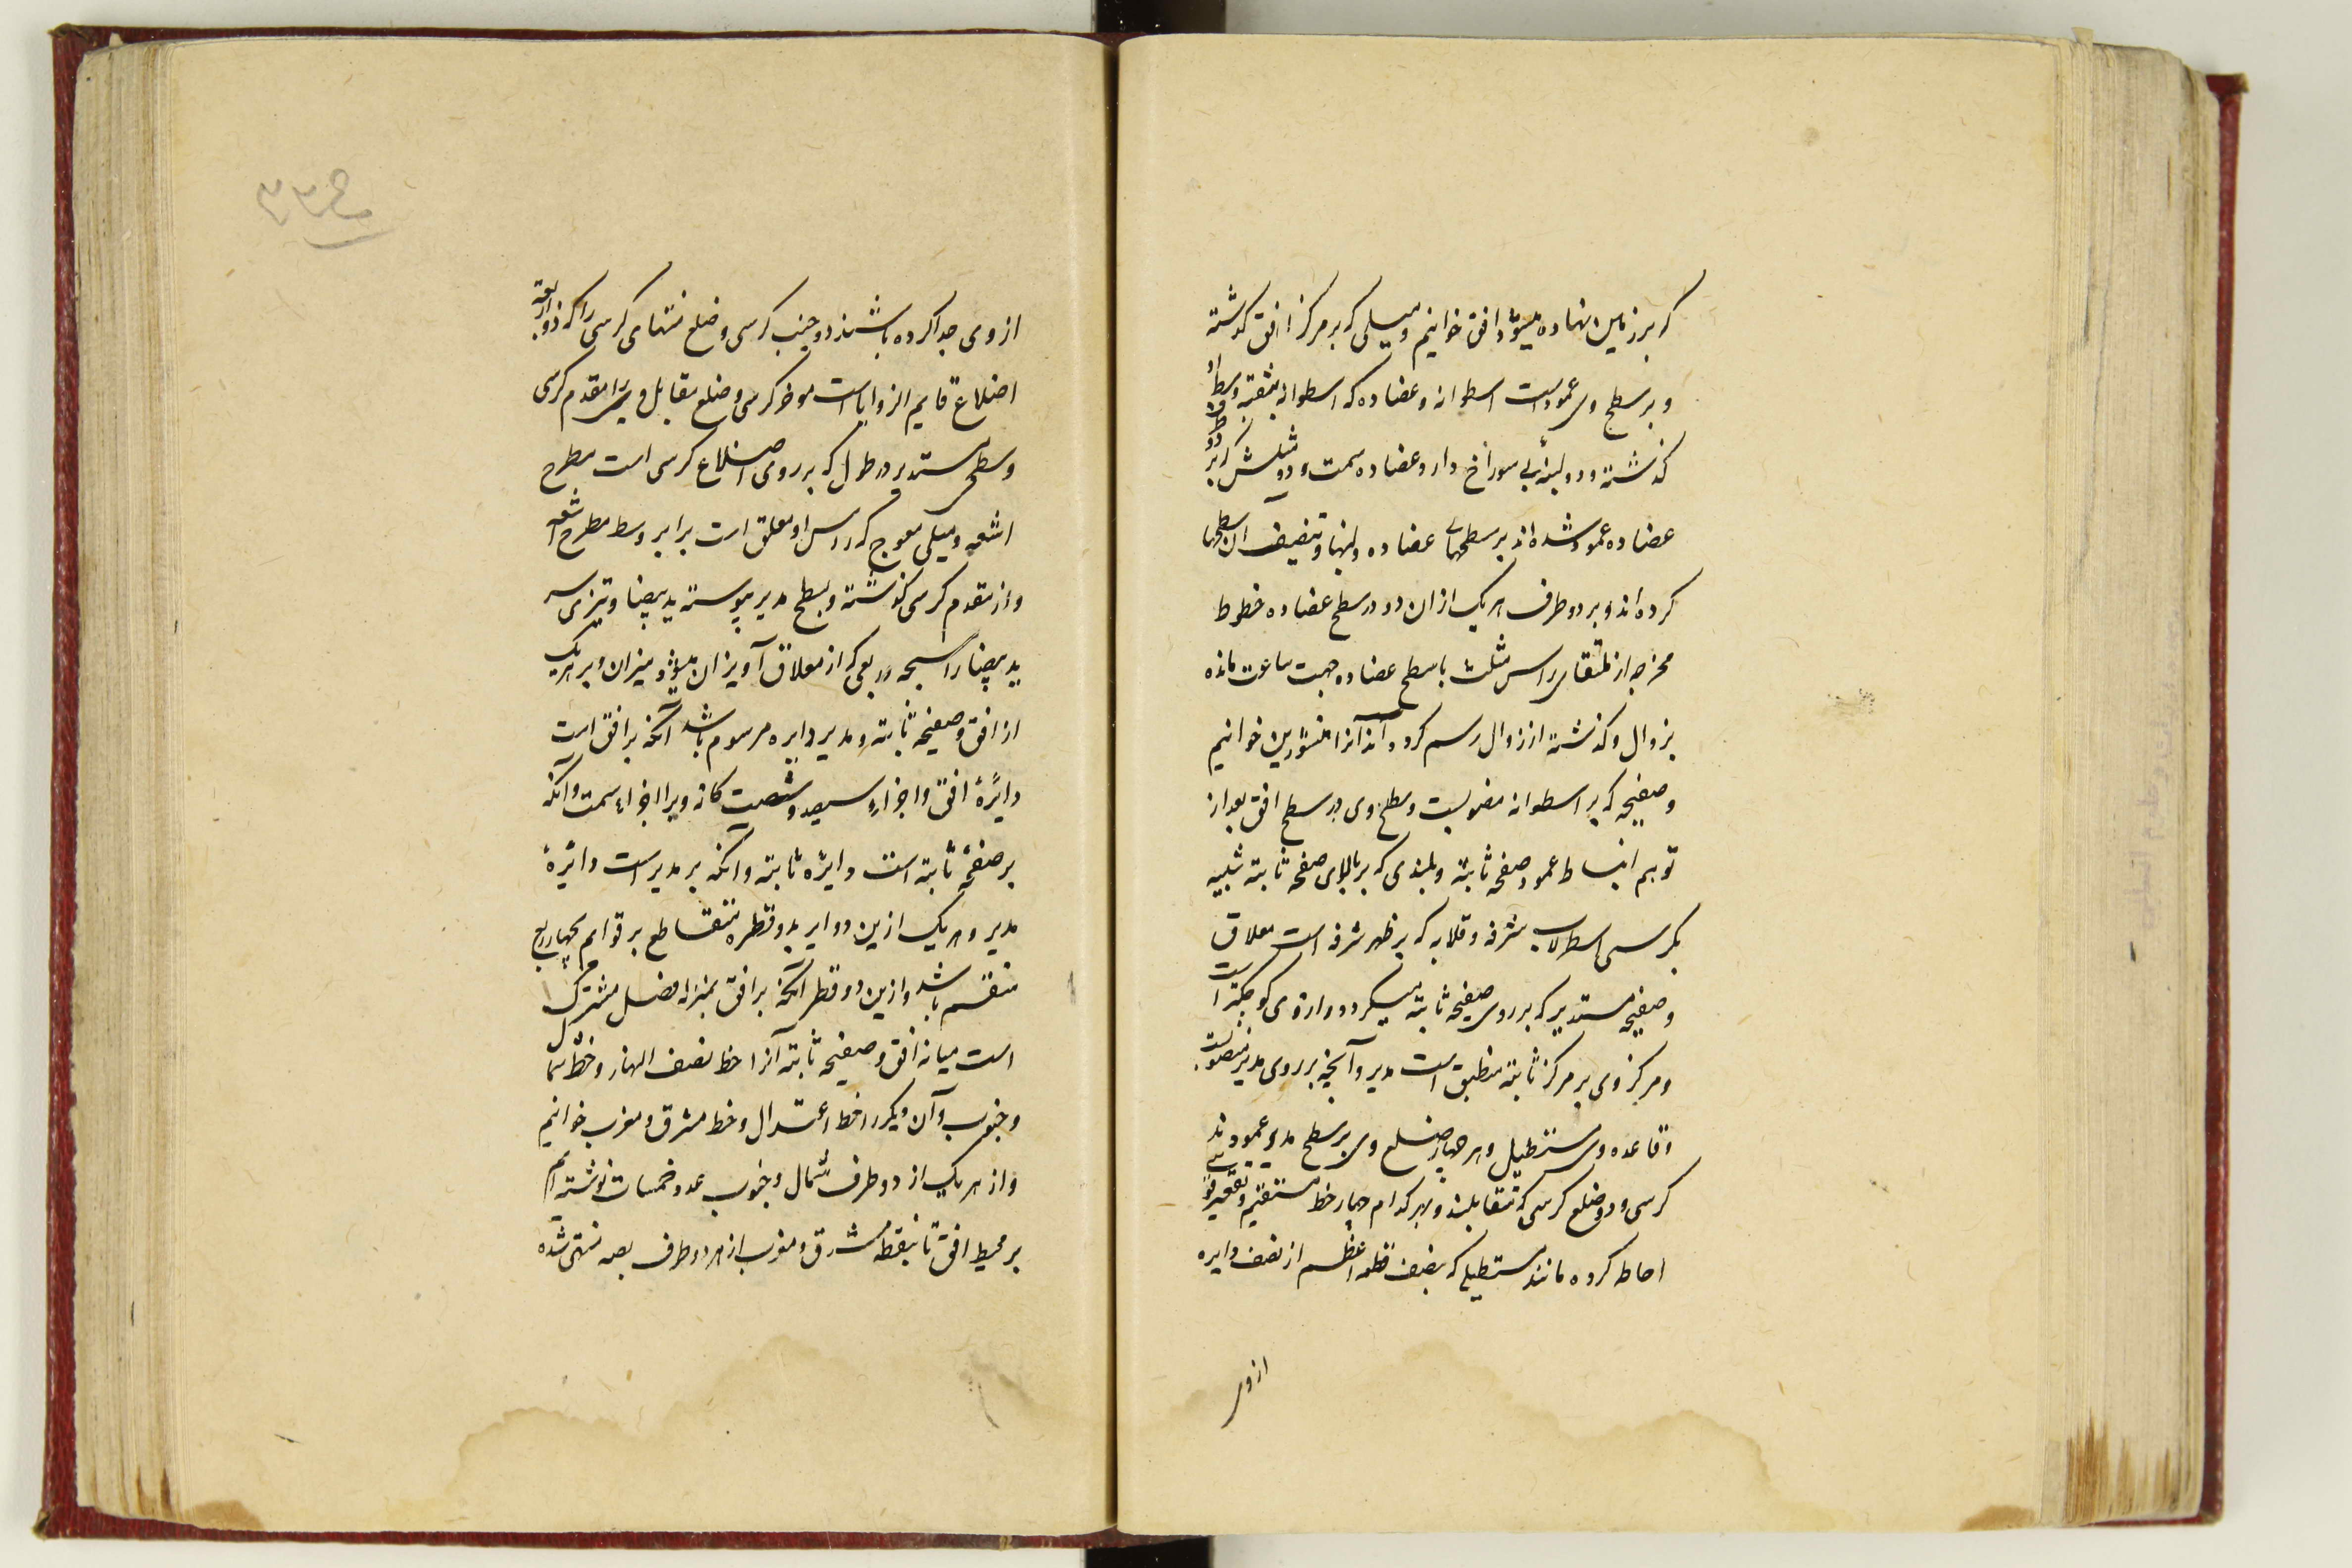 که بر زمین نهاده میشود افق خوانیم و میلی که بر مرکز افق گذشته
و بر سطح وی عمود است اسطوانه و عضاده که اسطوانه بثقبه وسط او
گذشته و دو لبنه بی سوراخ دارد عضاده سمت و دو مثلث که بر دو طرف
عضاده عمود شده‌اند بر سطحهای عضاده و لبنها و تنصیف آن سطحها
کرده‌اند و بر دو طرف هر یک از ان دو در سطح عضاده خطوط
مخرجه از ملتقای راس مثلث با سطح عضاده جهت ساعت مانده
بزوال و گذشته از زوال رسم کرده‌اند آنرا منشورین خوانیم
و صفیحه که بر اسطوانه منصوبست و سطح وی در سطح افق بعد از
توهم انبساط عمود صفحه ثابته و بلندی که بر بالای صفحه ثابته شبیه
بکرسی اسطرلاب شرفه و قلابه که بر ظهر شرفه است معلاق
و صفیحه مستدیر که بر روی صفیحه ثابته میگردد و از وی کوچکتر است
و مرکز وی بر مرکز ثابته منطبق است مدیر و آنچه بر روی مدیر منصوبست
و قاعده وی مستطیل و هر چهار ضلع وی بر سطح مدیر عمودند
کرسی و دو ضلع کرسی که متقابلند و بهر کدام چهار خط مستقیم و تقعیر قوسی
احاطه کرده مانند مستطیلی که بنصف قطعه اعظم از نصف دایره
از وی
از وی جدا کرده باشند دو جنب کرسی و ضلع منتهای کرسی را که ذو اربعة
اضلاع قایم الزوایا است موخر کرسی و ضلع مقابل ویرا مقدم کرسی
و سطحی مستدیر در طول که بر روی اضلاع کرسی است مطرح
اشعه و میلی معوج که راس او معلق است برابر وسط مطرح اشعه
و از مقدم کرسی گذشته و بسطح مدیر پیوسته ید بیضا و تیزی سر
ید بیضا را سبحه و ربعی که از معلاق آویزان میشود میزان و بر هر یک
از افق و صفیحه ثابته و مدیر دایره مرسوم باشد آنکه بر افق است
دایرهٔ افق و اجزاء سیصد و شصت گانه ویرا اجزاء سمت و آنکه
بر صفحه ثابته است دایره ثابته و آنکه بر مدیر است دایرهٔ
مدیر و هر یک ازین دوایر بدو قطر متقاطع بر قوایم بچهار ربع
منقسم باشد و ازین دو قطر آنکه بر افق بمنزله فصل مشترک
است میانه افق و صفیحه ثابته آنرا خط نصف النهار و خط شمال
و جنوب و آن دیگر را خط اعتدال و خط مشرق و مغرب خوانیم
و از هر یک از دو طرف شمال و جنوب عدد خمسات نوشته‌ایم
بر محیط افق تا بنقطه مشرق و مغرب از هر دو طرف بصه منتهی شده